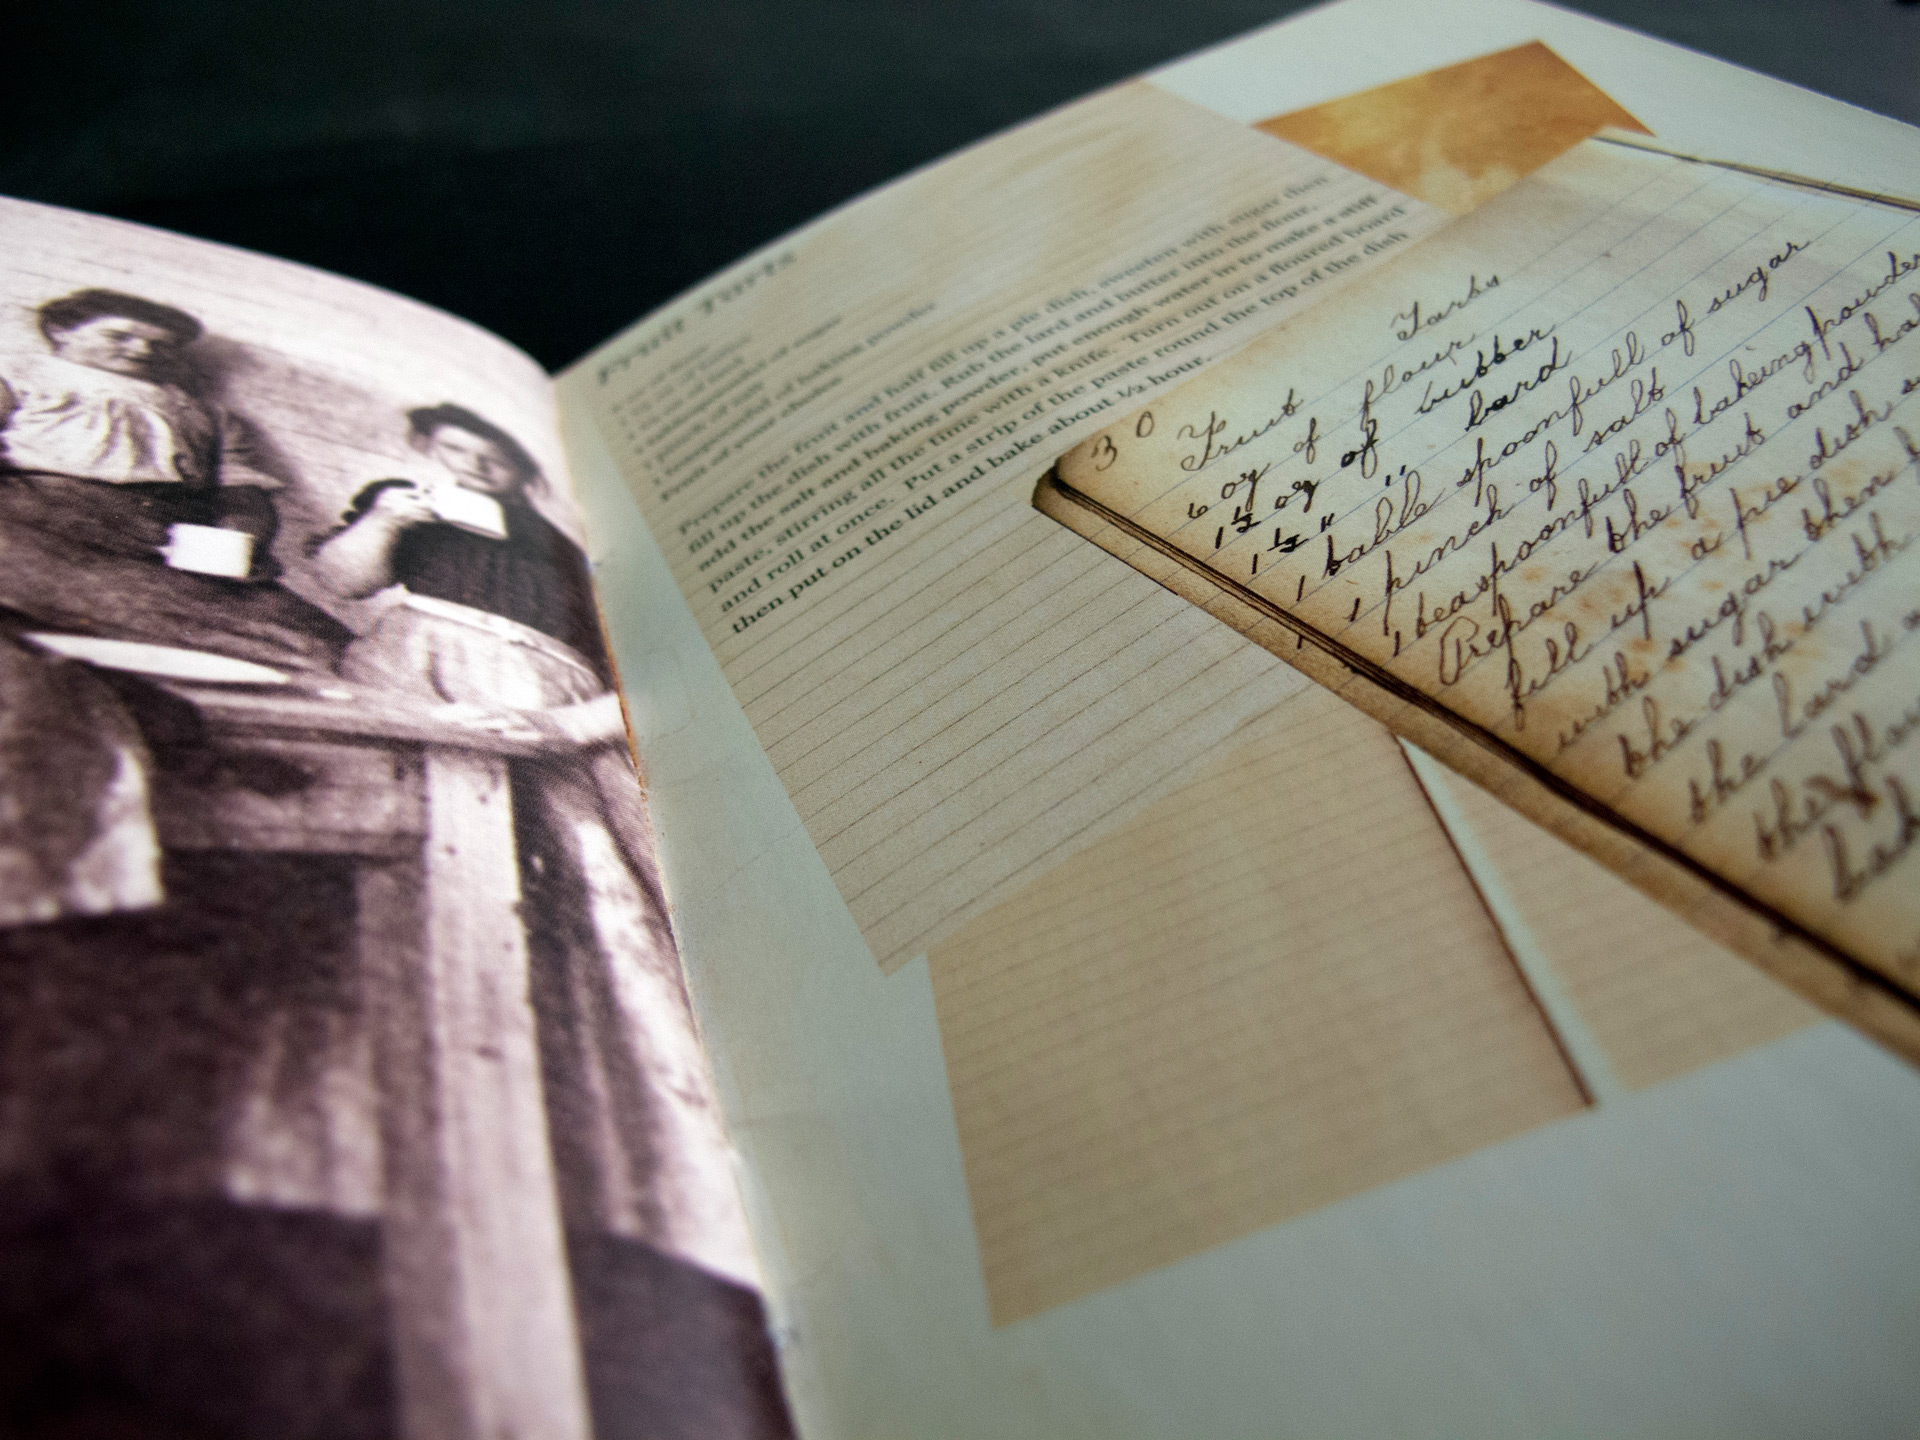 Fruit Tarts
1 teaspoonful of baking powder
Fruit of your choice
Prepare the fruit and half fill up a pie dish, sweeten with sugar then
fill up the dish with fruit. Rub the lard and butter into the flour,
add the salt and baking powder, put enough water in to make a stiff
paste, stirring all the time with a knife. Turn out on a floured board
and roll at once. Put a strip of the paste round the top of the dish
then put on the lid and bake about ½ hour.
30
Fruit Tarts
6 oz of flour
1½ oz of butter
1½ " " lard
1 table spoonfull of sugar
1 pinch of salt
1 teaspoonfull of bakeing powder
Prepare the fruit and half
fill up a pie dish
with sugar then
the dish with
the lard
the flour